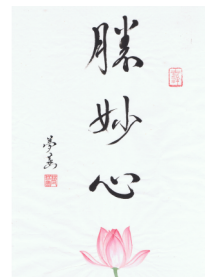 勝妙心